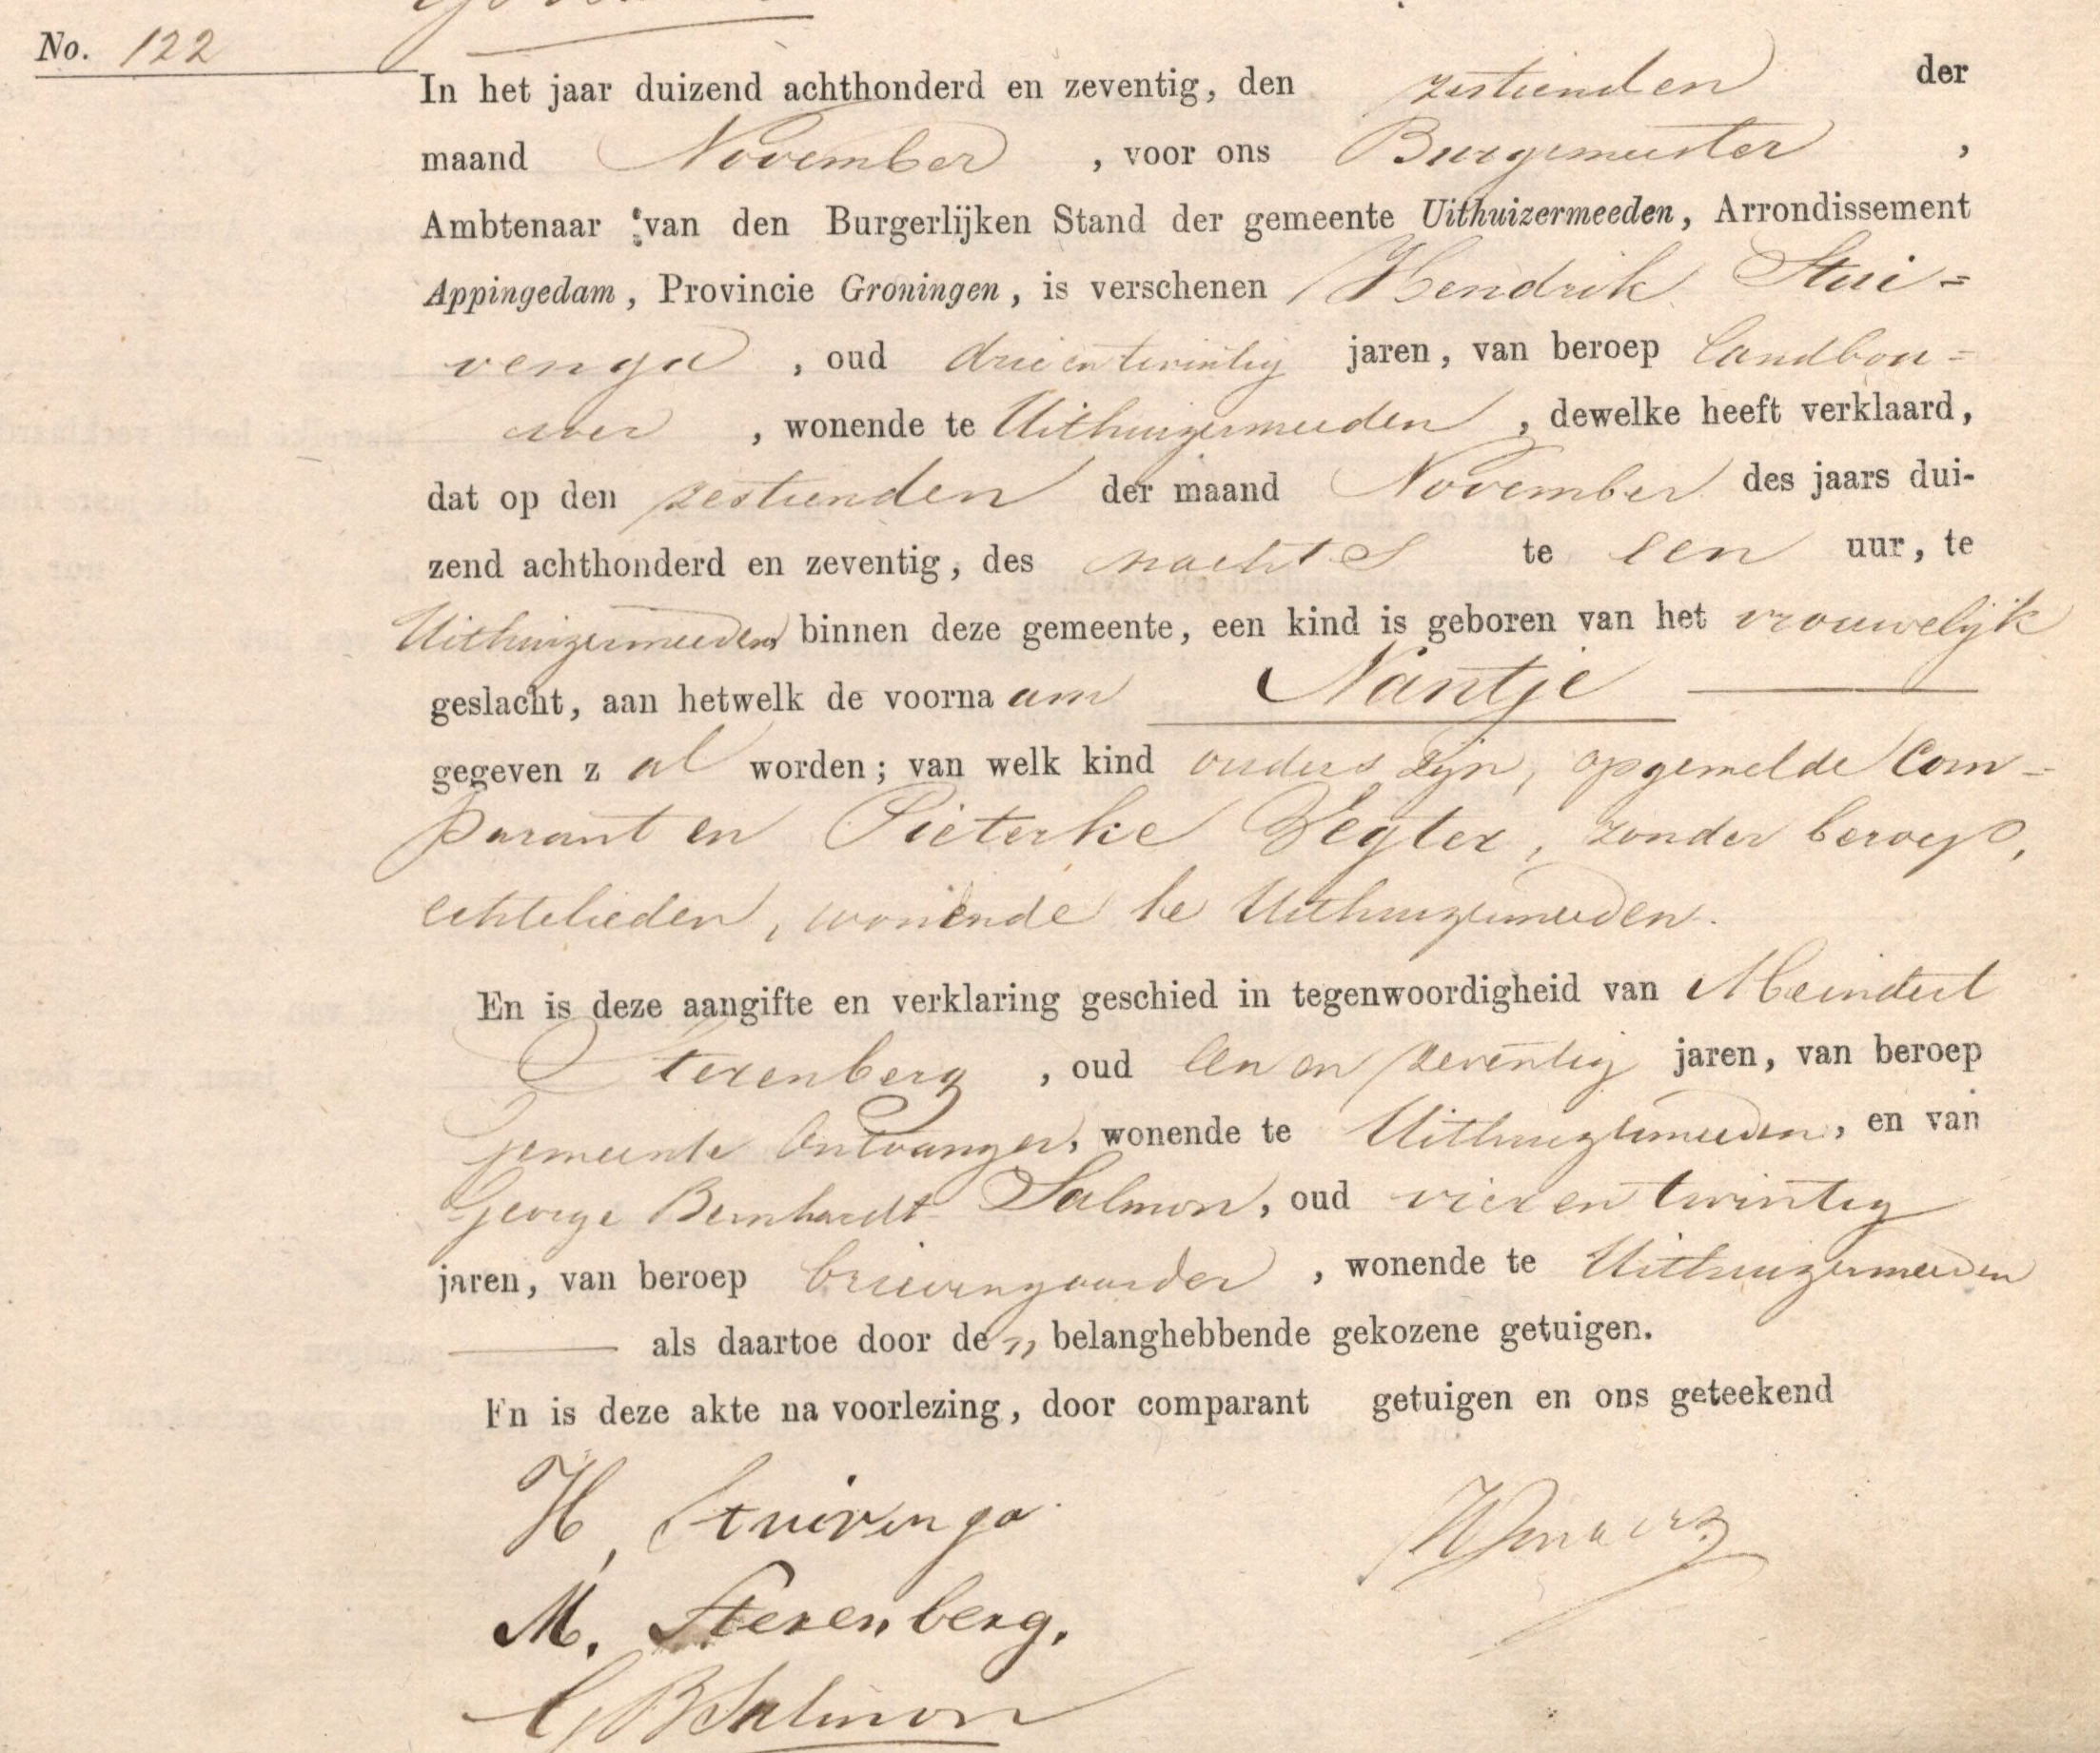 No. 122
In het jaar duizend achthonderd en zeventig, den zestienden der
maand November, voor ons Burgemeester,
Ambtenaar van den Burgerlijken Stand der gemeente Uithuizermeeden, Arrondissement
Appingedam, Provincie Groningen, is verschenen Hendrik Stui=
venga, oud drieentwintig jaren, van beroep landbou=
wer, wonende te Uithuizermeeden, dewelke heeft verklaard,
dat op den zestienden der maand November des jaars dui-
zend achthonderd en zeventig, des nachts te een uur, te
Uithuizermeeden binnen deze gemeente, een kind is geboren van het vrouwelijk
geslacht, aan hetwelk de voornaam Nantje
gegeven zal worden; van welk kind ouders zijn, opgemelde Com=
parant en Pieterke Vegter, zonder beroep,
echtelieden, wonende te Uithuizermeeden.
En is deze aangifte en verklaring geschied in tegenwoordigheid van Meindert
Sterenberg, oud een en zeventig jaren, van beroep
Gemeente Ontvanger, wonende te Uithuizermeeden, en van
George Bernhardt Salmon, oud vier en twintig
jaren, van beroep brievengaarder, wonende te Uithuizermeeden
als daartoe door den belanghebbende gekozene getuigen.
En is deze akte na voorlezing, door comparant getuigen en ons geteekend
H. Stuivenga
M. Sterenberg.
GB Salmon